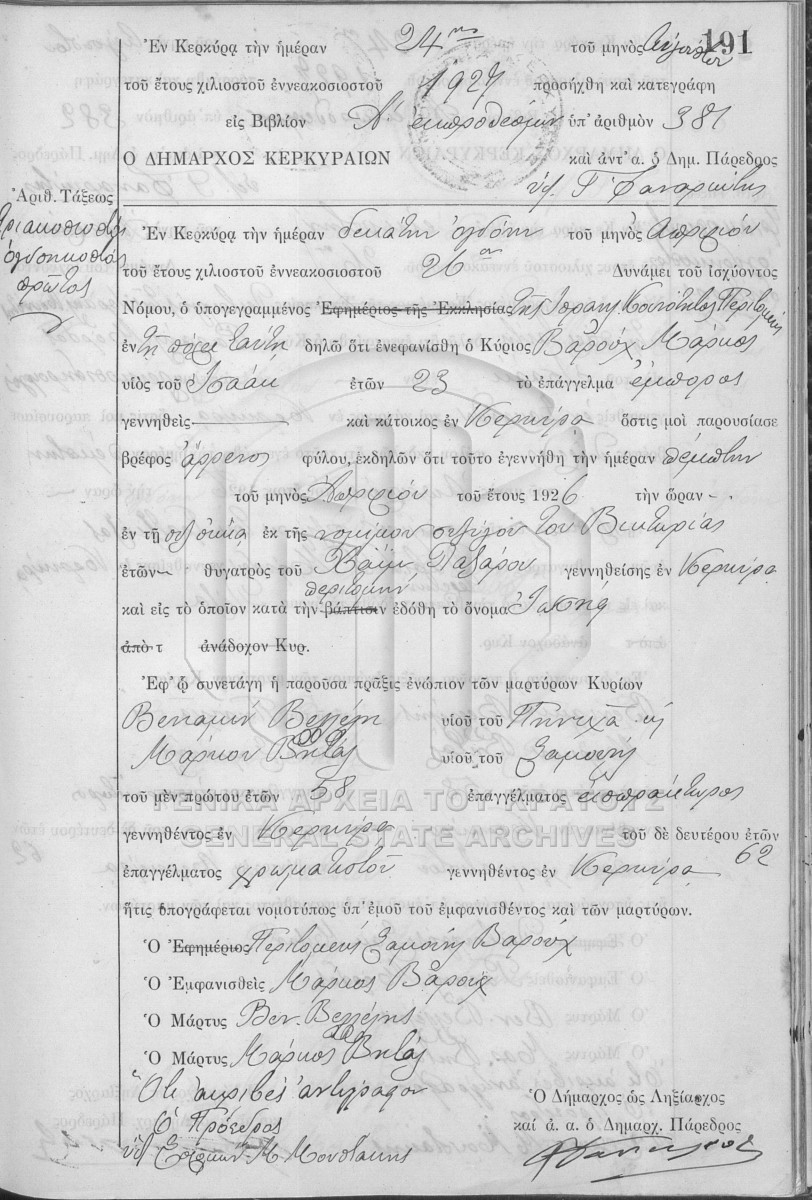 191
Ἐν Κερκύρᾳ τὴν ἡμέραν 24ην τοῦ μηνὸς Αὐγούστου
τοῦ ἔτους χιλιοστοῦ ἐννεακοσιοστοῦ 1927 προσήχθη καὶ κατεγράφη
εἰς Βιβλίον Α΄ ἐκπροθέσμων ὑπ' ἀριθμὸν 381
Ο ΔΗΜΑΡΧΟΣ ΚΕΡΚΥΡΑΙΩΝ καὶ ἀντ' α. ὁ Δημ. Πάρεδρος
ὑπ. Γ. Φαναριώτης
Ἀριθ. Τάξεως
Τριακοσιοστὸς
ὀγδοηκοστὸς
πρῶτος
Ἐν Κερκύρᾳ τὴν ἡμέραν δεκάτην ὀγδόην τοῦ μηνὸς Ἀπριλίου
τοῦ ἔτους χιλιοστοῦ ἐννεακοσιοστοῦ 26ου Δυνάμει τοῦ ἰσχύοντος
Νόμου, ὁ ὑπογεγραμμένος Ἐφημέριος τῆς Ἐκκλησίας τῆς Ἰσραηλ. Κοινότητος Περιτομεὺς
ἐν τῇ πόλει ταύτῃ δηλῶ ὅτι ἐνεφανίσθη ὁ Κύριος Βαροὺχ Μάρκος
υἱὸς τοῦ Ἰσαὰκ ἐτῶν 23 τὸ ἐπάγγελμα ἔμπορος
γεννηθεὶς καὶ κάτοικος ἐν Κερκύρᾳ ὅστις μοὶ παρουσίασε
βρέφος ἄρρενος φύλου, ἐκδηλῶν ὅτι τοῦτο ἐγεννήθη τὴν ἡμέραν πέμπτην
τοῦ μηνὸς Ἀπριλίου τοῦ ἔτους 1926 τὴν ὥραν -
ἐν τῇ οἰκίᾳ ἐκ τῆς νομίμου συζύγου του Βικτωρίας
ἐτῶν - θυγατρὸς τοῦ Χαῒμ Λαζάρου γεννηθείσης ἐν Κερκύρᾳ
περιτομὴν
καὶ εἰς τὸ ὁποῖον κατὰ τὴν βάπτισιν ἐδόθη τὸ ὄνομα Ἰωσὴφ
ἀπὸ τ ἀνάδοχον Κυρ.
Ἐφ' ᾧ συνετάγη ἡ παροῦσα πρᾶξις ἐνώπιον τῶν μαρτύρων Κυρίων
Βενιαμὶν Βελλέλη υἱοῦ τοῦ Πινιχᾶ
Μάρκου Βιτάλ υἱοῦ τοῦ Σαμουὴλ
τοῦ μὲν πρώτου ἐτῶν 58 ἐπαγγέλματος εἰσπράκτορος
ΓΕΝΙΚΑ ΑΡΧΕΙΑ ΤΟΥ ΚΡΑΤΟΥΣ
GENERAL STATE ARCHIVES
γεννηθέντος ἐν Κερκύρᾳ τοῦ δὲ δευτέρου ἐτῶν 62
ἐπαγγέλματος χρωματιστοῦ γεννηθέντος ἐν Κερκύρᾳ
ἥτις ὑπογράφεται νομοτύπως ὑπ' ἐμοῦ τοῦ ἐμφανισθέντος καὶ τῶν μαρτύρων.
Ὁ Ἐφημέριος Περιτομεὺς Σαμουὴλ Βαροὺχ
Ὁ Ἐμφανισθεὶς Μάρκος Βαροὺχ
Ὁ Μάρτυς Βεν. Βελλέλης
Ὁ Μάρτυς Μάρκος Βιτάλ
Ὅτι ἀκριβὲς ἀντίγραφον
Ὁ Πρόεδρος
Ὁ Δήμαρχος ὡς Ληξίαρχος
καὶ ἀ. α. ὁ Δημαρχ. Πάρεδρος